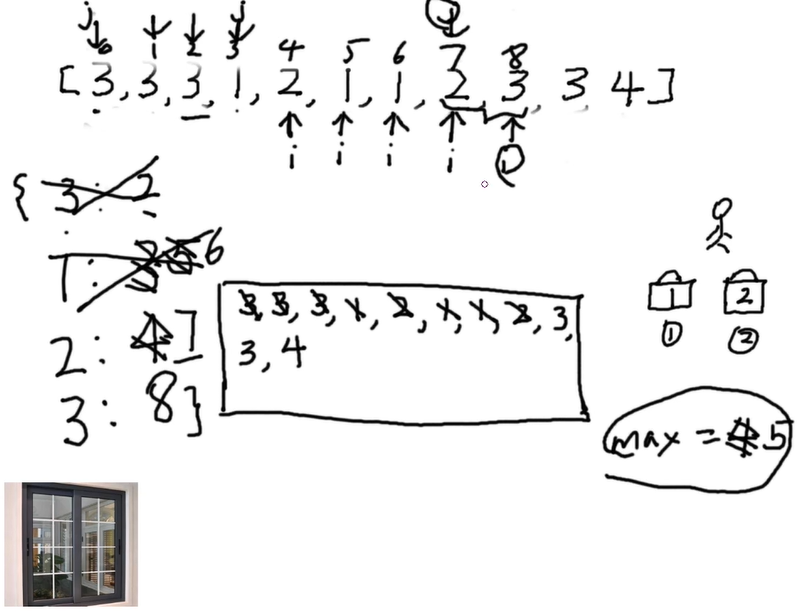 j j Q
0 1 2 3 4 5 6 7 8
[3, 3, 3, 1, 2, 1, 1, 2, 3, 3, 4]
i i i i
{ 3: 2
1: 3 5 6
2: 4 7
3: 8 }
3, 3, 3, 1, 2, 1, 1, 2, 3,
3, 4
1 2
1 2
max = 4 5